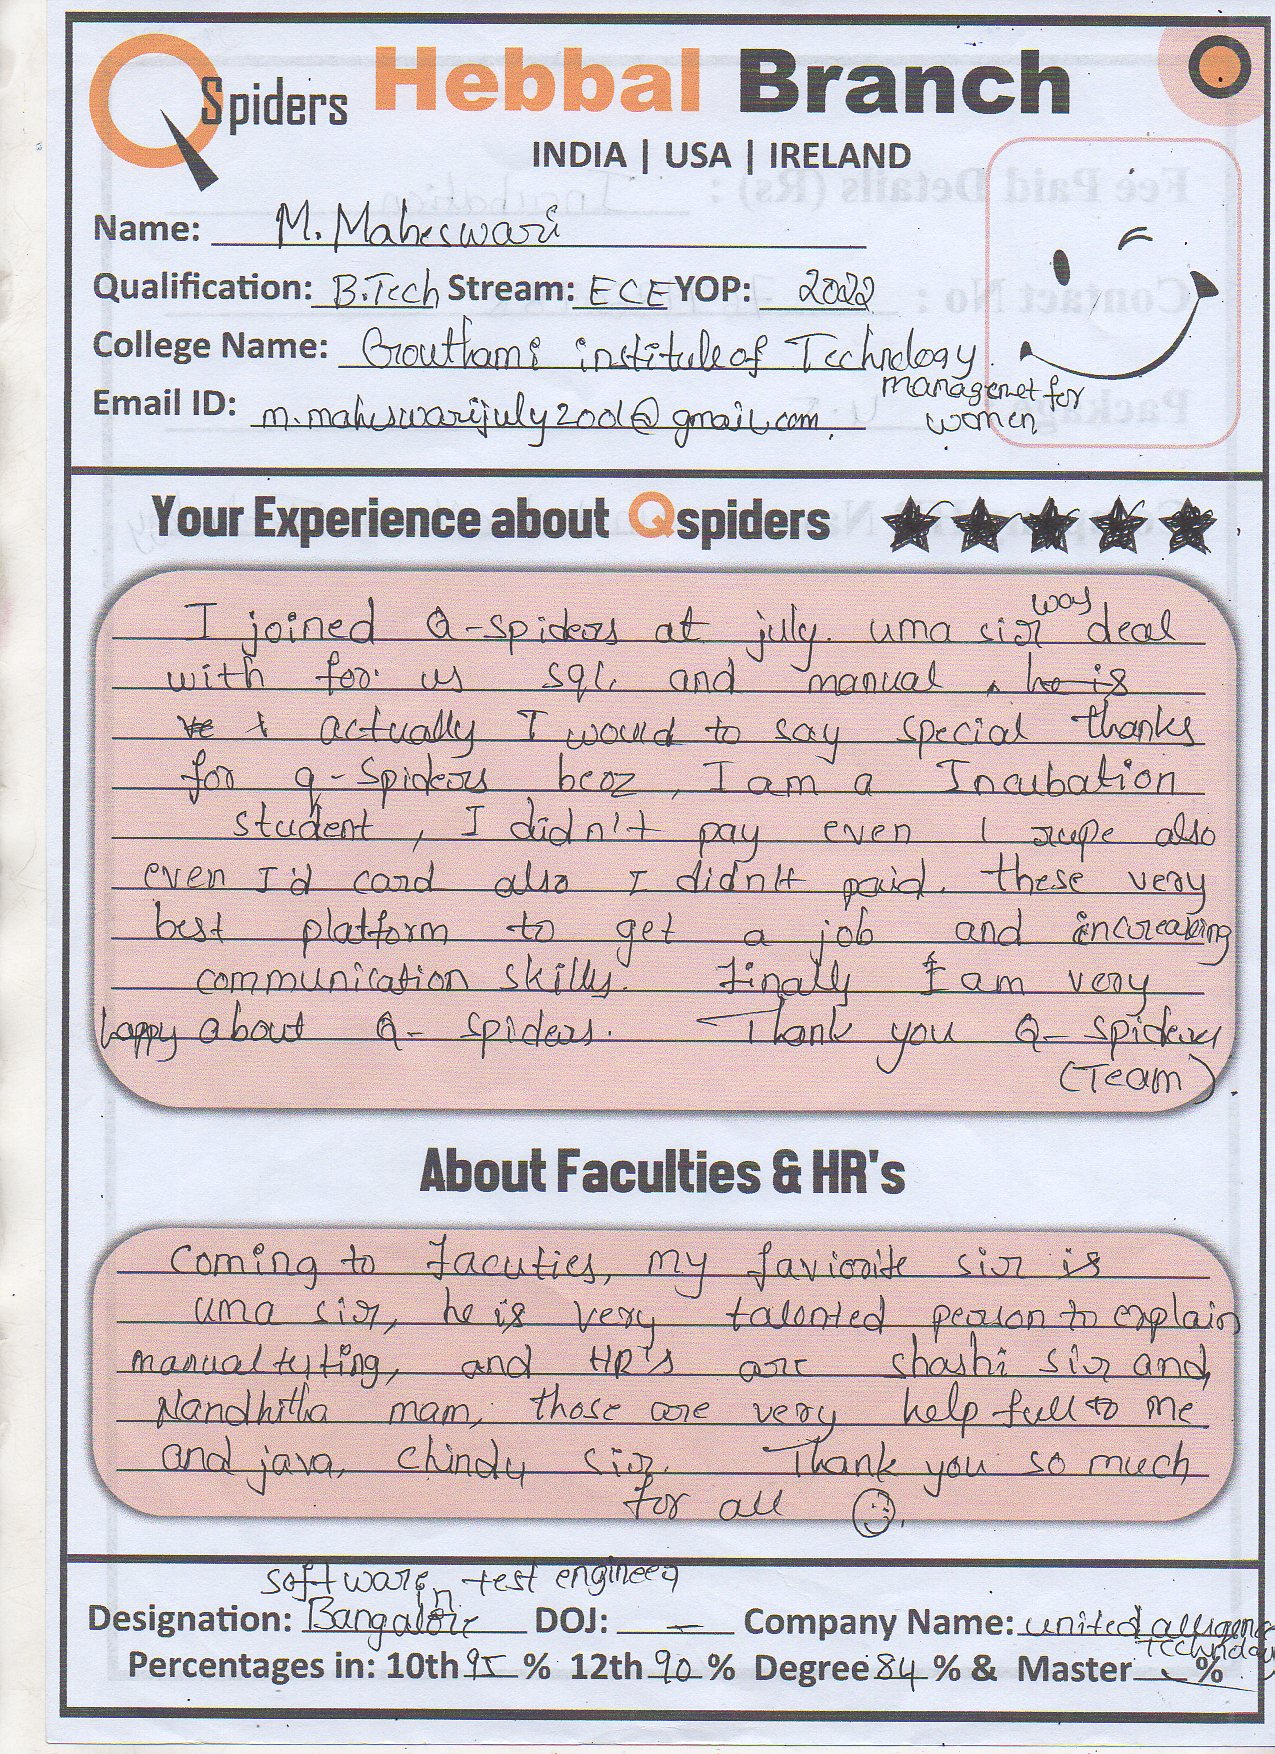 QSpiders Hebbal Branch
INDIA | USA | IRELAND
Name: M. Maheswari
Qualification: B.Tech Stream: ECE YOP: 2022
College Name: Gouthami institute of Technology
managenet for
women
Email ID: m.maheswarijuly2001@gmail.com.
Your Experience about Qspiders
I joined Q-spiders at july. uma sir was deal
with for us sql, and manual , he is
actually I would to say special thanks
for q-spiders becoz, I am a Incubation
student, I didn't pay even 1 rupe also
even I'd card also I didn't paid. these very
best platform to get a job and increasing
communication skills. Finally I am very
happy about Q- spiders. Thank you Q- spiders
(Team).
About Faculties & HR's
Coming to Facuties, my faviorite sir is
uma sir, he is very talented person to explain
manual testing, and HR's are shashi sir and,
Nandhitha mam, those are very help full to me
and java, chindy sir. Thank you so much
for all
software test engineer
Designation: in Bangalore DOJ: — Company Name: united
Technology
Percentages in: 10th 95 % 12th 90 % Degree 84 % & Master - %
Fee Paid Details (Rs) : Incubation
Contact No :